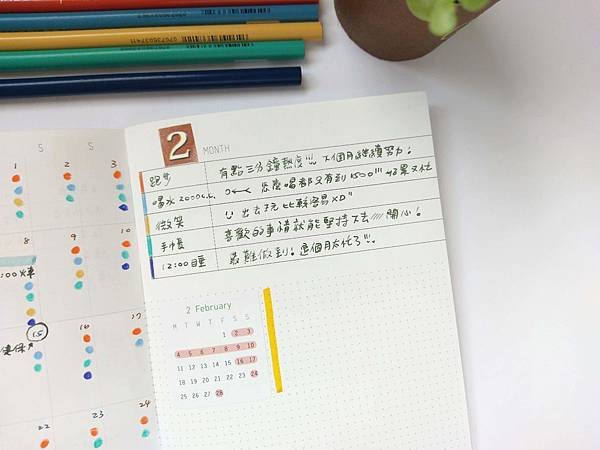 0703603741
2 MONTH
跑步 有點三分鐘熱度!!! 下個月繼續努力!
喝水 2000c.c.
微笑 出去玩比較容易XD"
手帳 喜歡的事情就能堅持下去//// 開心!
12:00睡 最難做到! 這個月太忙了!!!
S S
1 2 3
8 9 10
:00火車
15 16 17
22 23 24
2 February
M T W T F S S
1 2 3
4 5 6 7 8 9 10
11 12 13 14 15 16 17
18 19 20 21 22 23 24
25 26 27 28